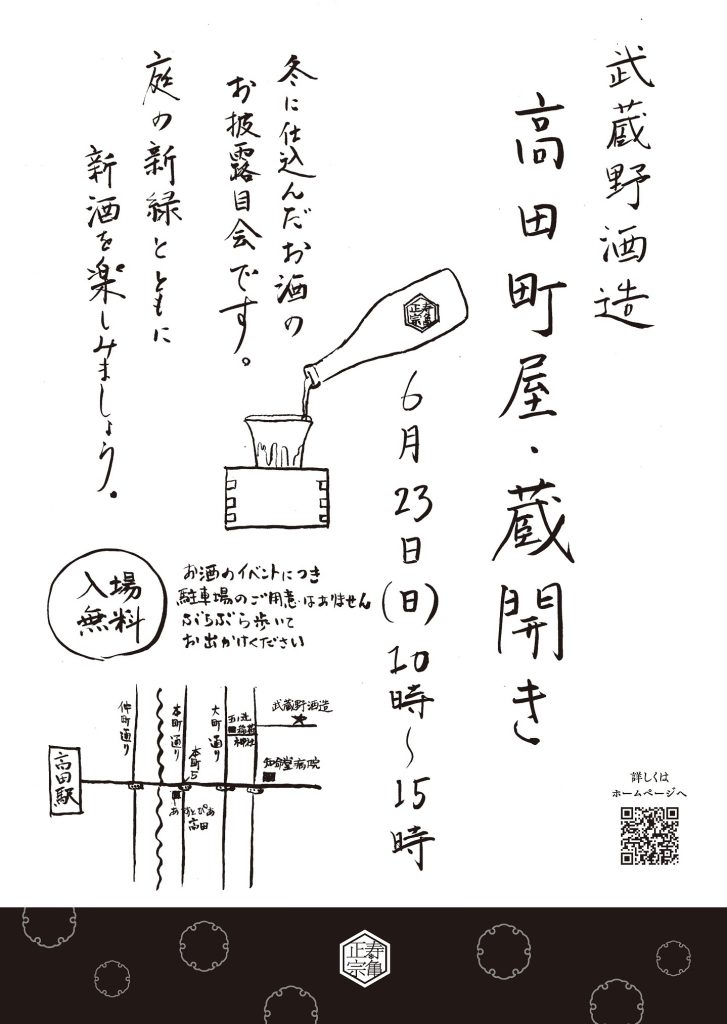 武蔵野酒造
高田町屋・蔵開き
6月23日(日)10時～15時
冬に仕込んだお酒の
お披露目会です。
庭の新緑とともに
新酒を楽しみましょう。
正宗
寿亀
入場
無料
お酒のイベントにつき
駐車場のご用意はありません
ぶらぶら歩いて
お出かけください
高田駅
仲町通り
本町通り
本町5
大町通り
武蔵野酒造
神社
知命堂病院
あすとぴあ
高田
詳しくは
ホームページへ
正宗
寿亀